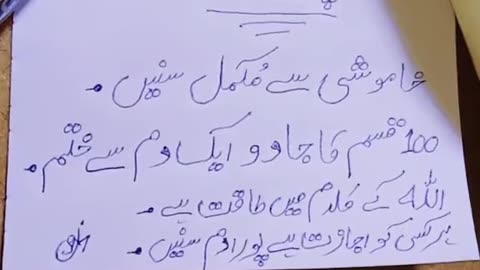 خاموشی سے مکمل سنیں۔
100 قسم کا جادو ایک دم سے ختم۔
اللہ کے کلام میں طاقت ہے۔
ہر کسی کو اجازت ہے پورا دم سنیں۔